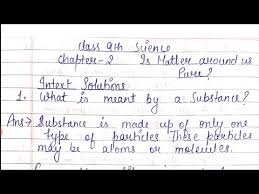 Class 9th Science
Chapter-2 Is Matter around us
Pure?
Intext Solutions
1. What is meant by a Substance?
Ans→ Substance is made up of only one
type of particles These particles
may be atoms or molecules.